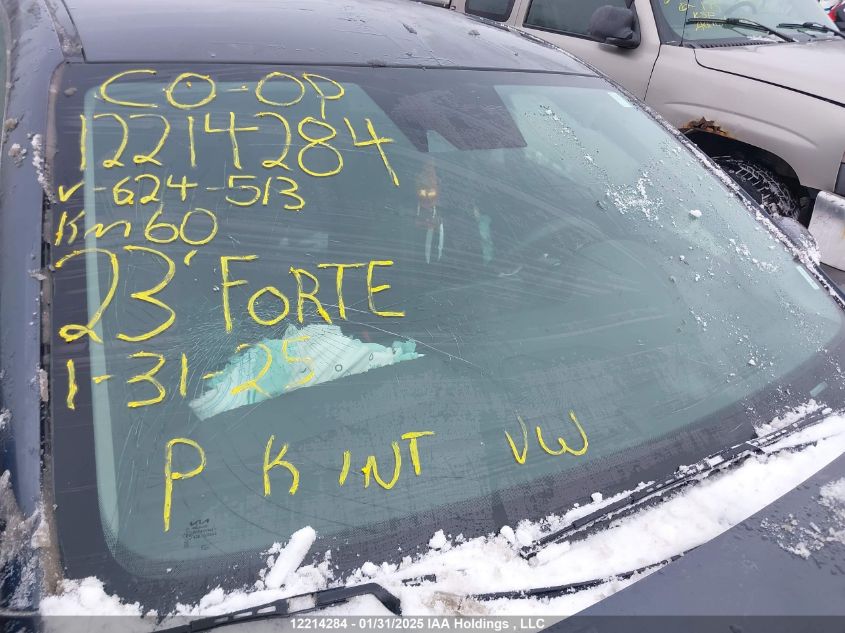 CO-OP
12214284
V-624-513
Km 60
23' FORTE
1-31-25
P K INT VW
KIA
12214284 - 01/31/2025 IAA Holdings , LLC